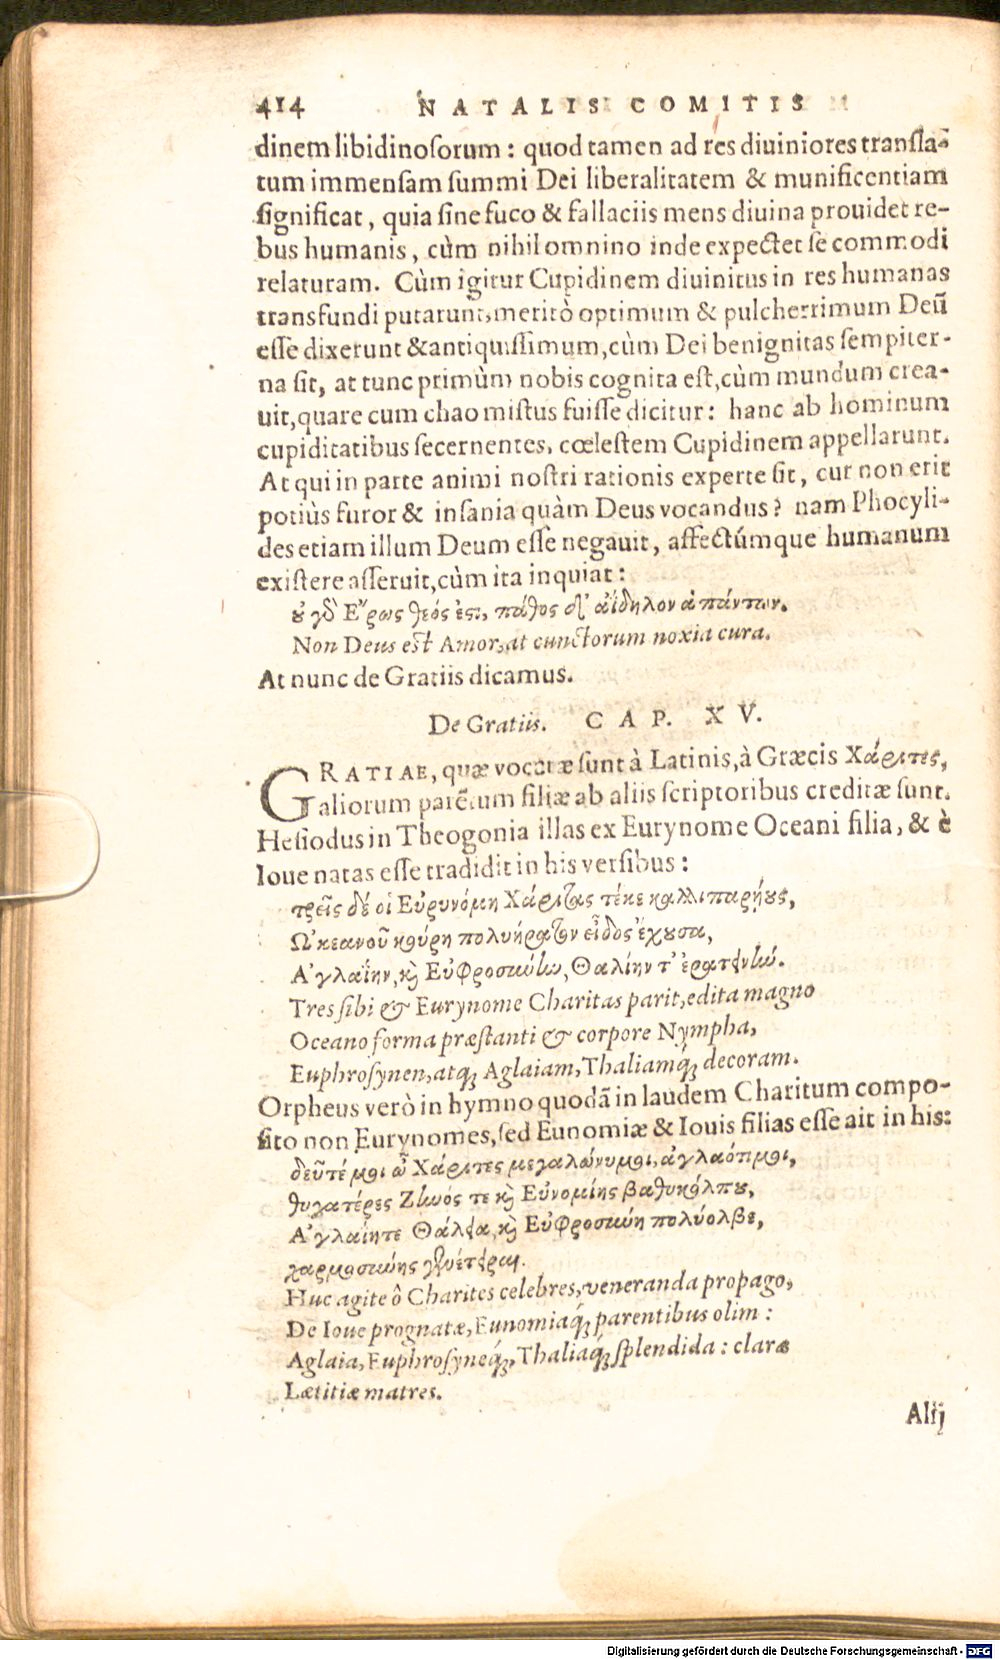 414 NATALIS COMITIS
dinem libidinosorum: quod tamen ad res diuiniores transla-
tum immensam summi Dei liberalitatem & munificentiam
significat, quia sine fuco & fallaciis mens diuina prouidet re-
bus humanis, cùm nihil omnino inde expectet se commodi
relaturam. Cùm igitur Cupidinem diuinitus in res humanas
transfundi putarunt, meritò optimum & pulcherrimum Deũ
esse dixerunt & antiquissimum, cùm Dei benignitas sempiter-
na sit, at tunc primùm nobis cognita est, cùm mundum crea-
uit, quare cum chao mistus fuisse dicitur: hanc ab hominum
cupiditatibus secernentes, cœlestem Cupidinem appellarunt.
At qui in parte animi nostri rationis experte sit, cur non erit
potiùs furor & insania quàm Deus vocandus? nam Phocyli-
des etiam illum Deum esse negauit, affectúmque humanum
existere asseruit, cùm ita inquiat:
ȣ γδ Ἔρως θεός ἐςι, πάθος δ' ἀΐδηλον ἁπάντων.
Non Deus est Amor, at cunctorum noxia cura.
At nunc de Gratiis dicamus.
De Gratiis. CAP. XV.
GRATIAE, quæ vocatæ sunt à Latinis, à Græcis Χάριτες,
aliorum parẽtum filiæ ab aliis scriptoribus creditæ sunt.
Hesiodus in Theogonia illas ex Eurynome Oceani filia, & è
Ioue natas esse tradidit in his versibus:
τρεῖς δέ οἱ Εὐρυνόμη Χάριτας τέκε καλλιπαρῄȣς,
Ὠκεανοῦ κούρη πολυήρατον εἶδος ἔχȣσα,
Ἀγλαΐην, ϗ Εὐφροσύνην, Θαλίην τ' ἐρατεινήν.
Tres sibi & Eurynome Charitas parit, edita magno
Oceano forma præstanti & corpore Nympha,
Euphrosynen, atq; Aglaiam, Thaliamq́; decoram.
Orpheus verò in hymno quodã in laudem Charitum compo-
sito non Eurynomes, sed Eunomiæ & Iouis filias esse ait in his:
δεῦτέ μοι ὦ Χάριτες μεγαλώνυμοι, ἀγλαότιμοι,
θυγατέρες Ζηνός τε ϗ Εὐνομίης βαθυκόλπȣ,
Ἀγλαΐητε Θάλεια, ϗ Εὐφροσύνη πολύολβε,
χαρμοσύνης
Huc agite ô Charites celebres, veneranda propago,
De Ioue prognatæ, Eunomiaq́; parentibus olim:
Aglaia, Euphrosyneq́;, Thaliaq́; splendida: claræ
Lætitiæ matres.
Alij
Digitalisierung gefördert durch die Deutsche Forschungsgemeinschaft - DFG